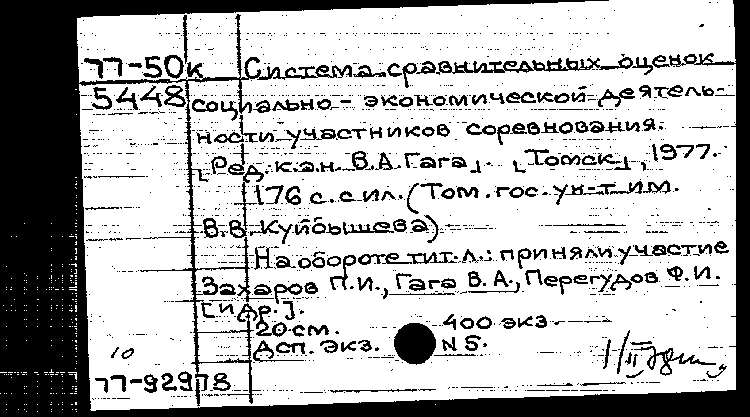 77-50к Система сравнительных оценок
5448 социально-экономической деятель-
ности участников соревнования.
[Ред. к.э.н. В.А. Гага]. [Томск], 1977.
176 с. с ил. (Том. гос. ун-т им.
В.В. Куйбышева)
На обороте тит. л.: приняли участие
Захаров П.И., Гага В.А., Перегудов Ф.И.
[и др.].
20 см. 400 экз.
Дсп. экз. N 5.
10
77-92978